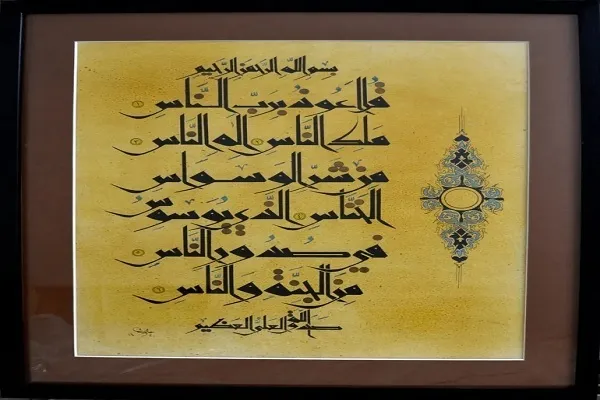 بسم الله الرحمن الرحيم
قل اعوذ برب الناس ١
ملك الناس ٢ اله الناس ٣
من شر الوسواس
الخناس ٤ الذي يوسوس
في صدور الناس ٥
من الجنة و الناس ٦
صدق الله العلي العظيم